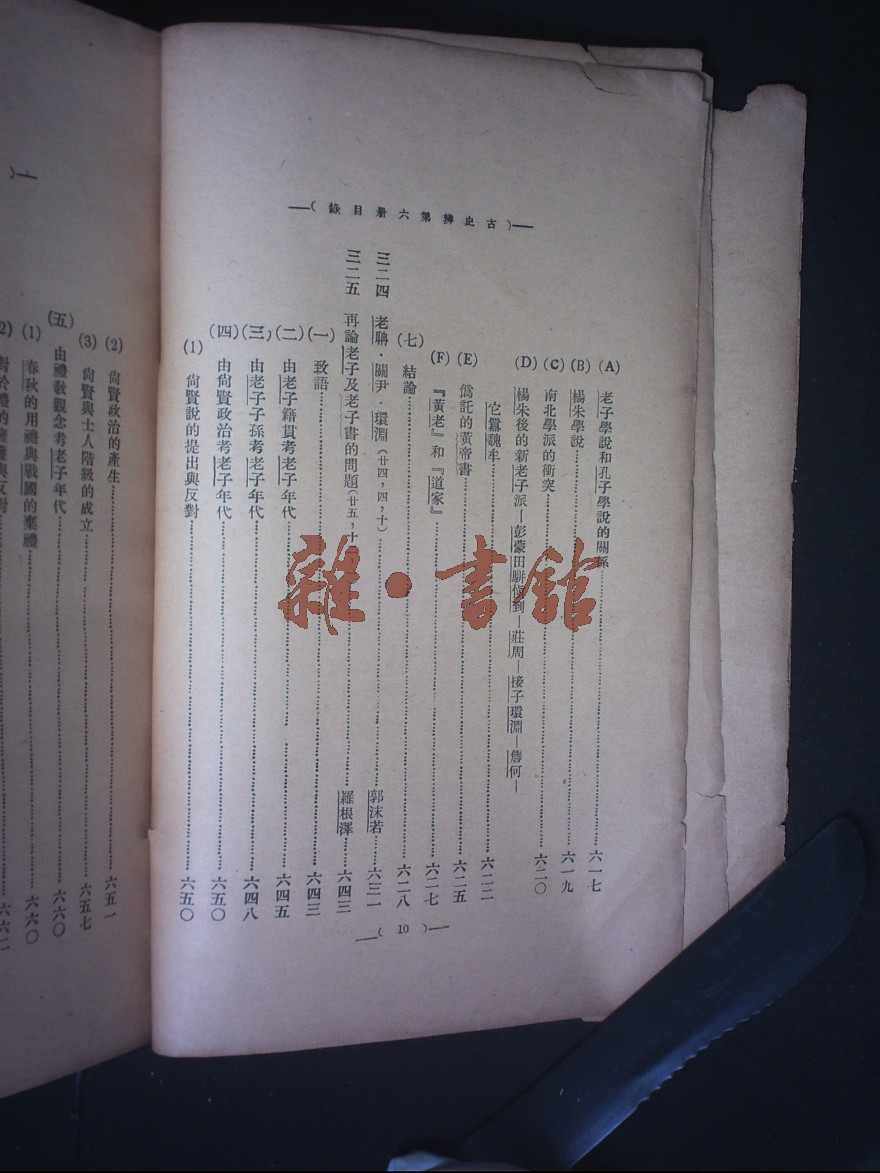 古史辨第六册目錄
(A) 老子學說和孔子學說的關係 六一七
(B) 楊朱學說 六一九
(C) 南北學派的衝突 六二〇
(D) 楊朱後的新老子派—彭蒙田駢愼到—莊周—接子環淵—詹何—
它囂魏牟 六二二
(E) 僞託的黃帝書 六二五
(F) 『黃老』和『道家』 六二七
(七) 結論 六二八
三二四 老聃・關尹・環淵(廿四,四,十) 郭沫若 六三一
三二五 再論老子及老子書的問題(廿五,十 羅根澤 六四三
(一) 致語 六四三
(二) 由老子籍貫考老子年代 六四五
(三) 由老子子孫考老子年代 六四八
(四) 由尙賢政治考老子年代 六五〇
(1) 尙賢說的提出與反對 六五〇
( 10 )
(2) 尙賢政治的產生 六五一
(3) 尙賢與士人階級的成立 六五七
(五) 由禮敎觀念考老子年代 六六〇
(1) 春秋的用禮與戰國的棄禮 六六〇
雜・書館